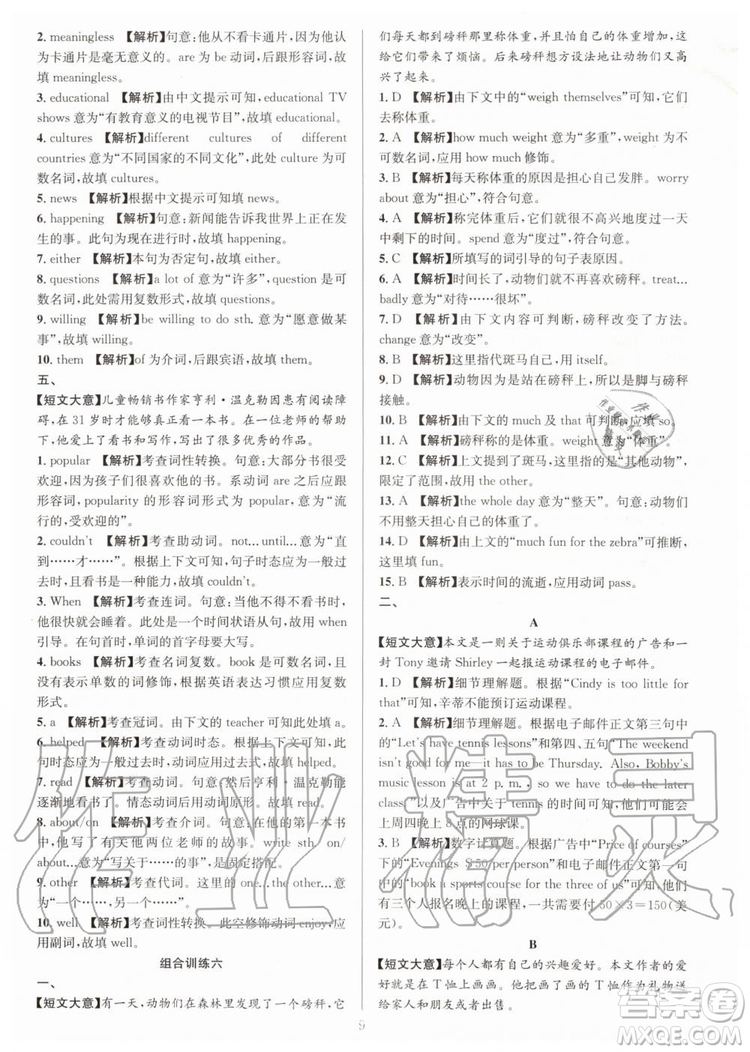 2. meaningless 【解析】句意:他从不看卡通片,因为他认
为卡通片是毫无意义的。are 为 be 动词,后跟形容词,故
填 meaningless。
3. educational 【解析】由中文提示可知,educational TV
shows 意为“有教育意义的电视节目”,故填 educational。
4. cultures 【解析】different cultures of different
countries 意为“不同国家的不同文化”,此处 culture 为可
数名词,故填 cultures。
5. news 【解析】根据中文提示可知,故填 news。
6. happening 【解析】句意:新闻能告诉我世界上正在发
生的事。此句为现在进行时,故填 happening。
7. either 【解析】此句为否定句,故填 either。
8. questions 【解析】a lot of 意为“许多”,根据中文提示
可知,此处需用复数形式,故填 questions。
9. willing 【解析】be willing to do sth. 意为“愿意做某
事”,故填 willing。
10. them 【解析】of 为介词,后跟宾语,故填 them。
五、
【短文大意】儿童畅销书作家亨利·温克勒因患有阅读障
碍,在 31 岁时才能够看完一本书。在一位老师的帮助
下,他爱上了看书、写书,出版了很多优秀的作品。
1. popular 【解析】考查词性转换。句意:大部分书很受
欢迎,因为孩子们很喜欢这些书。系动词 are 后应跟
形容词,popularity 的形容词形式为 popular,意为“流
行的,受欢迎的”。
2. couldn't 【解析】考查助动词。not...until...意为“直
到……才……”。根据上下文可知,句子时态应为一般过
去时,且此处是一种能力,故填 couldn't。
3. When 【解析】考查连词。句意:当他开始看书时,他
很快就会睡着。这是一个时间状语从句,应由 when
引导。在句首,单词的首字母要大写。
4. books 【解析】考查名词复数。book 是可数名词,没
有表示单数的词修饰,根据上下文可知,应用其复数
形式。
5. a 【解析】考查冠词。由下文的 teacher 可知填 a。
6. helped 【解析】考查动词时态。根据上下文可知,本
句应为一般过去时,故填 helped。
7. read 【解析】考查动词原形。句意:然后亨利·温克勒
逐渐地看得更好了。情态动词后应跟动词原形。
8. about/on 【解析】考查介词。句意:在他的第一本书
中,他写了关于他和另外两位老师的故事。write sth on/
about 意为“写关于……的事”。
9. other 【解析】考查代词。one...the other...意为“一
个……另一个……”。
10. well 【解析】考查词性转换。此空修饰动词 enjoy,应
用副词,故填 well。
组合训练六
一、
【短文大意】有一天,动物们在森林里发现了一个磅秤,它
们发现每天称体重后,自己的体重增加了,这个磅秤给它
们带来了烦恼。后来磅秤想方设法地让动物们又高
兴了起来。
1. D 【解析】由下文中的“weigh themselves”可知,它们
去称体重。
2. A 【解析】how much weight 意为“多重”,weight 为不
可数名词,应用 how much 修饰。
3. C 【解析】每天称体重的原因是担心自己发胖。worry
about 意为“担心”,符合句意。
4. A 【解析】称完体重后,它们就会高兴地度过一天
中剩下的时间。spend 意为“度过”,符合句意。
5. C 【解析】所填写的词引导的句子表原因。
6. A 【解析】时间长了,动物们不再喜欢磅秤。treat...
badly 意为“对待……很坏”。
7. D 【解析】由下文内容可知,磅秤改变了动物们。
change 意为“改变”。
8. B 【解析】这里指代斑马自己,用 itself。
9. D 【解析】动物因为要站在磅秤上,所以脚是与磅秤
接触。
10. B 【解析】由下文的 much 及 that 可判断,应填 so。
11. D 【解析】磅秤称的是体重。weight 意为“体重”。
12. C 【解析】上文提到了斑马,这里指的是“其他动物”,
限定了范围,故用 the other。
13. A 【解析】the whole day 意为“整天”。句意:动物们
不用整天担心自己的体重了。
14. D 【解析】由上文的“much fun for the zebra”可推断,
这里填 fun。
15. B 【解析】表示时间的流逝,应用动词 pass。
二、
A
【短文大意】本文是一则关于运动俱乐部课程的广告和一
封 Tony 邀请 Shirley 一起报运动课程的电子邮件。
1. D 【解析】细节理解题。根据“Cindy is too little for
that”可知,辛蒂不能预订运动课程。
2. A 【解析】细节理解题。根据电子邮件正文第三句中
的“Let's have tennis lessons”和第四、五句“The weekend
isn't good for me—it has to be Thursday. Also, Bobby's
music lesson is at 2 p. m., so we need to do the later
class”以及广告中关于 tennis 的时间可知,他们会
上周四晚上 8 点的网球课。
3. B 【解析】数字计算题。根据广告中“Price of courses”
下的“Evenings $ 50/per person”和正文第二句中的
“book a sports course for the three of us”可知,他们
有三个人报名晚上的课程,要付 50×3=150(美
元)。
B
【短文大意】每个人都有自己的兴趣爱好。本文作者的爱
好就是在 T 恤上画画。他在 T 恤上画画,并作为礼物送
给家人和朋友或者出售。
9
作业精灵
答案圈
MXQE.COM